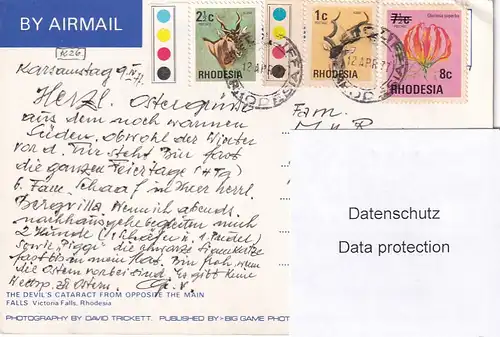 BY AIRMAIL
R26
2½c
RHODESIA
1c
RHODESIA
7½c
Gloriosa superba
8c
RHODESIA
12 APR 77
Karsamstag 9. IV. 77.
Herzl. Ostergrüße
aus dem noch warmen
Süden. Obwohl der Winter
vor d. Tür steht. Bin fast
die ganzen Feiertage (4 Tg)
b. Fam. Schaaf in Ihrer herrl.
Bergvilla. Wenn ich abends
nachhause gehe begleiten mich
2 Hunde (1 Schäfer u. 1 Pudel)
sowie "Piggi" die schwarze
fast bis an mein Haus. Bin froh wenn
die Ostern vorbei sind. Es gibt keine
zu Ostern.
Fam.
M
Datenschutz
Data protection
THE DEVIL'S CATARACT FROM OPPOSITE THE MAIN
FALLS Victoria Falls, Rhodesia
PHOTOGRAPHY BY DAVID TRICKETT. PUBLISHED BY BIG GAME PHOT